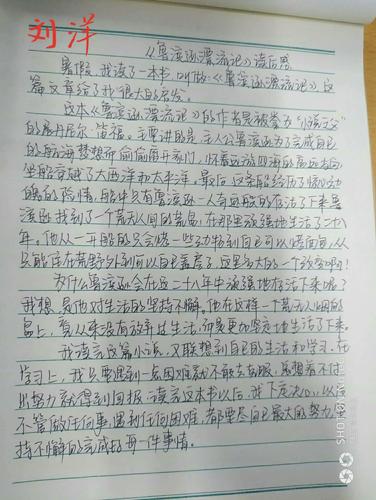 刘洋
《鲁滨逊漂流记》读后感
暑假,我读了一本书,叫做《鲁滨逊漂流记》,这
篇文章给了我很大的启发。
这本《鲁滨逊漂流记》的作者是被誉为“小说之父”
的丹尼尔·笛福。主要讲的是,主人公鲁滨逊为了完成自己
的航海梦想而偷偷离开家门,
坐船穿越了大西洋和太平洋。最后,这条船经历了惊心动
魄的险情,船中只有鲁滨逊一人奇迹般的存活了下来,鲁
滨逊找到了一个荒无人烟的荒岛,在那里顽强地生活了二十八
年。他从一开始的只会烧一些动物到自己可以烤面包,从
只能住在荒野外到可以自己盖房子,这是多大的一个改变啊!
为什么鲁滨逊会在这二十八年中顽强地存活下来呢?
我想,是他对生活的坚持不懈。他在这样一个荒无人烟的
岛上,看从来没有放弃过生活,而是更加坚定地生活了下来。
我读完这篇小说,又联想到自己的生活和学习,在
学习上,我只要遇到一点困难就不敢去克服,总想着不付
出努力就得到回报,读完这本书以后,我下定决心,以后
不管做任何事,遇到任何困难,都要尽自己最大的努力,坚
持不懈的完成好每一件事情。
SHOT ON